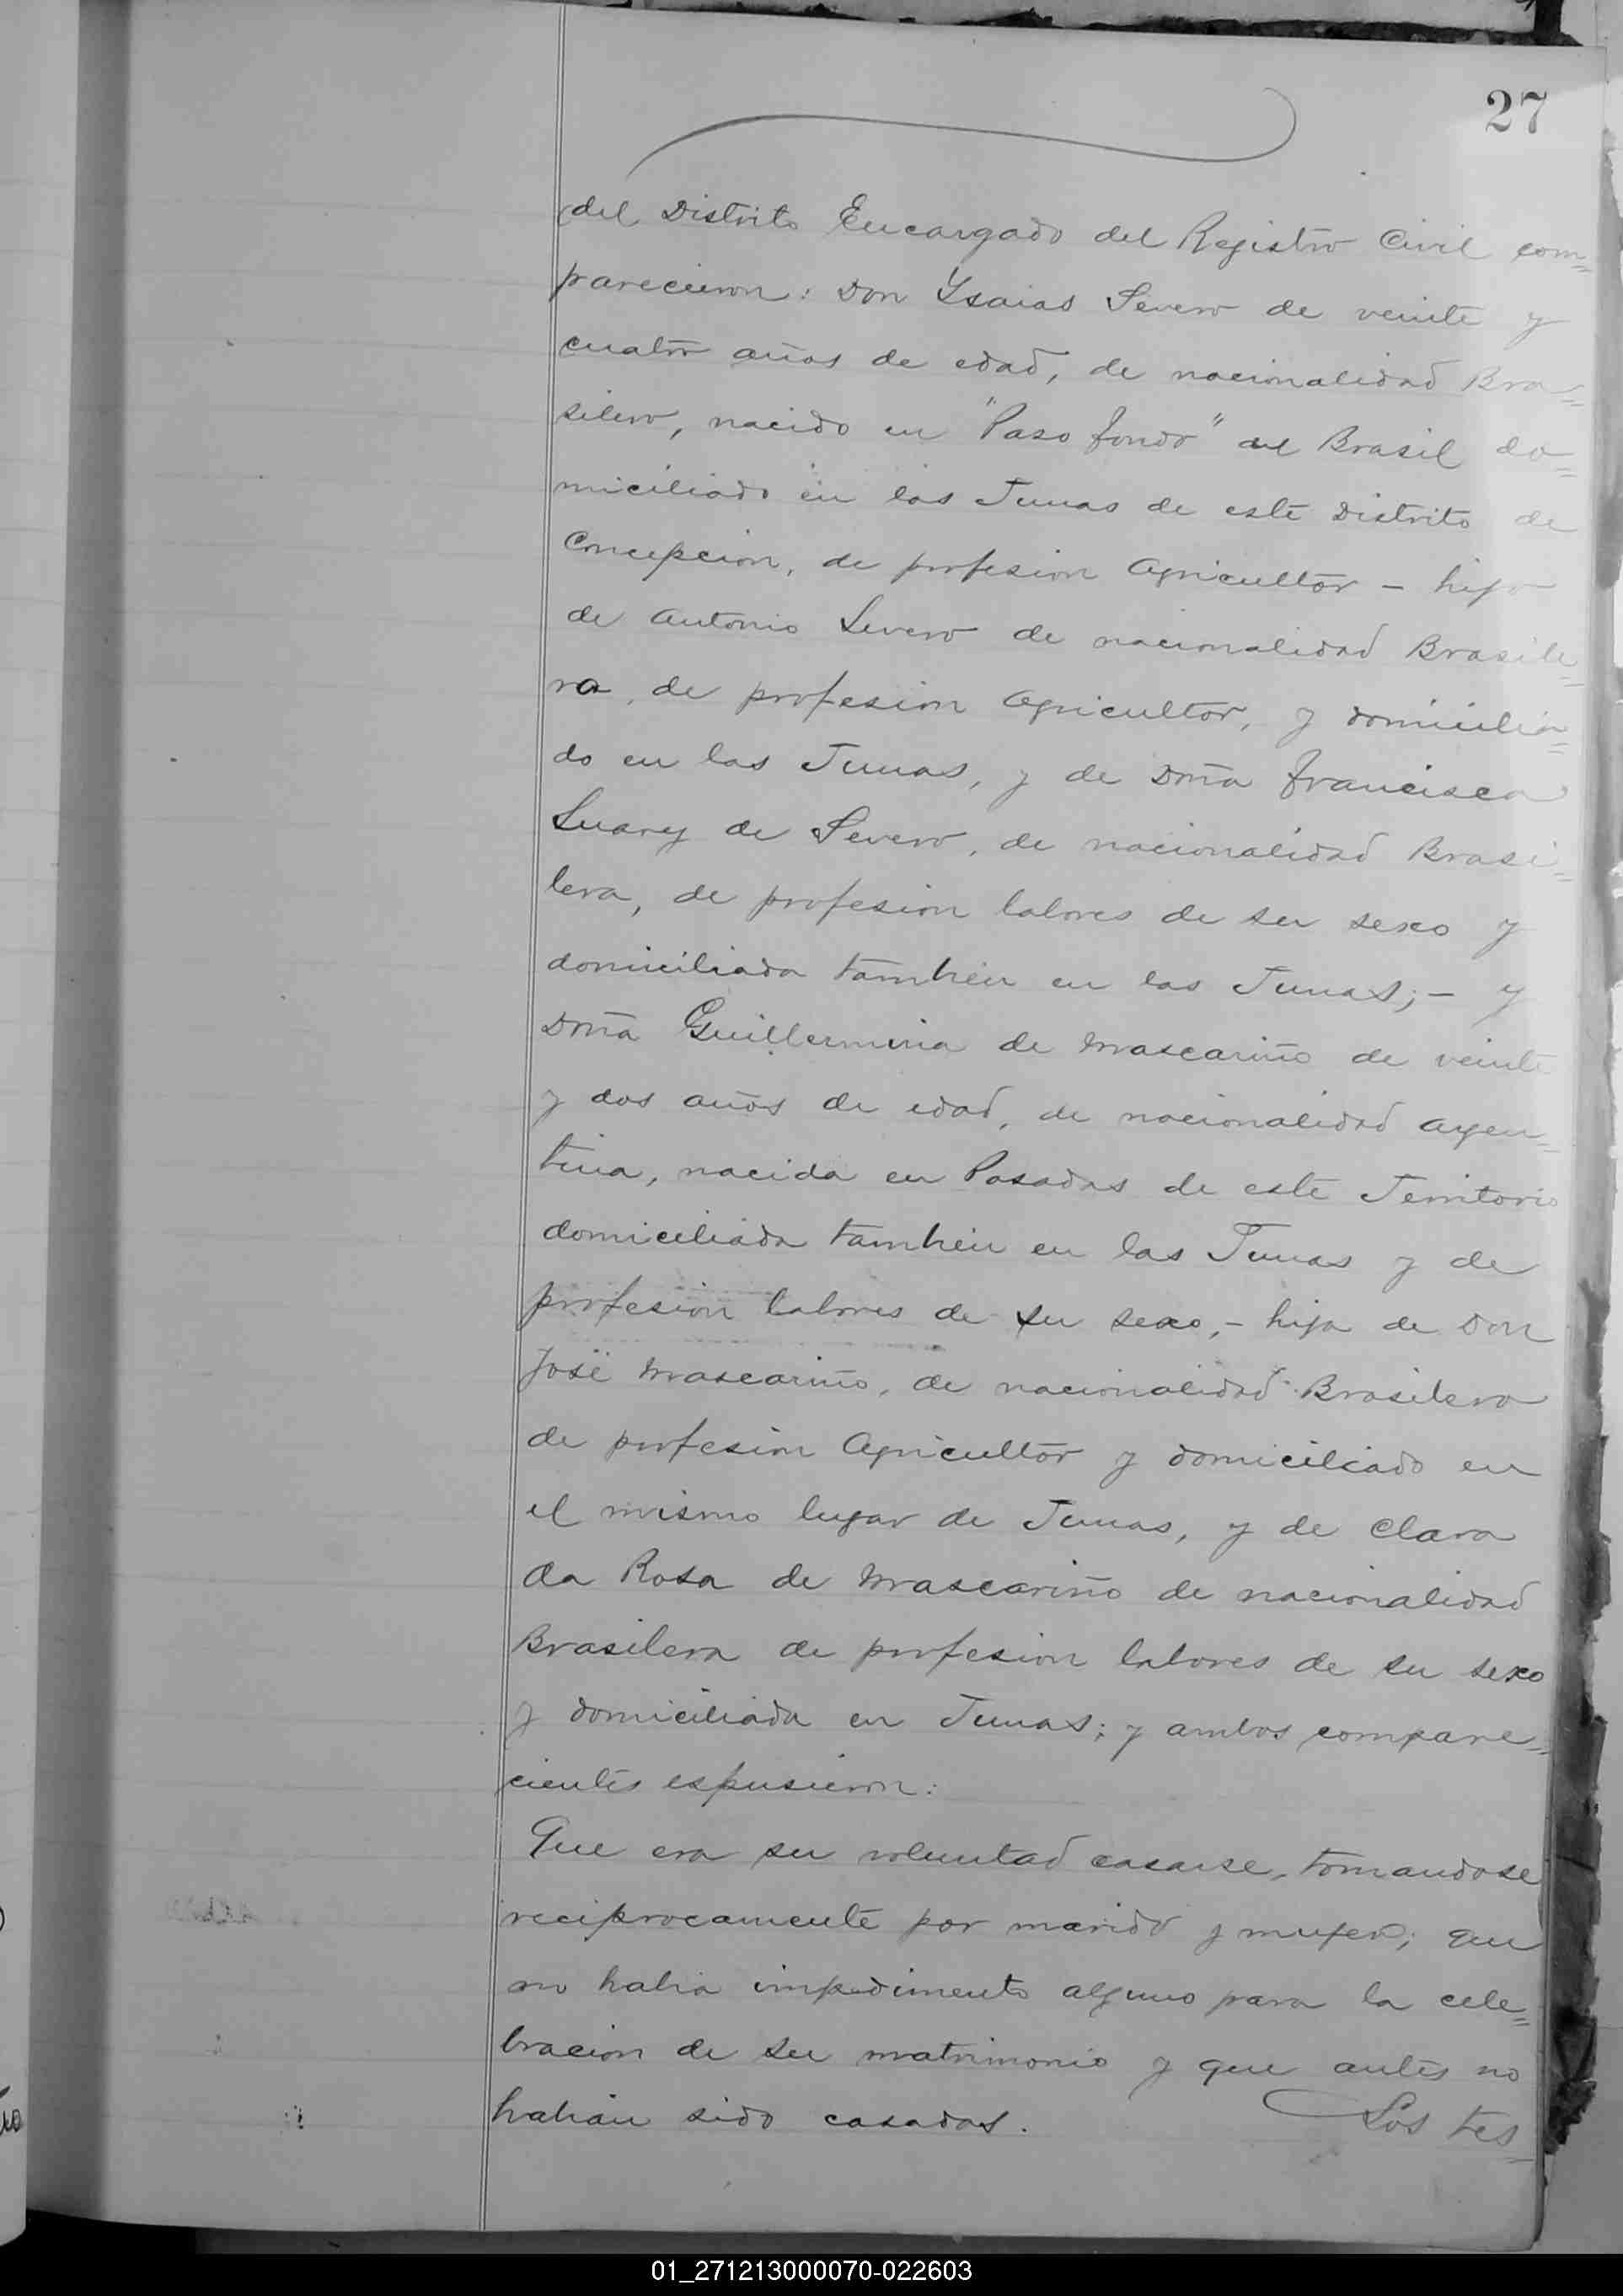 27
del Distrito Encargado del Registro Civil com=
parecieron: Don Ysaias Severo de veinte y
cuatro años de edad, de nacionalidad Bra=
silero, nacido en "Paso fondo" del Brasil do=
miciliado en las Tunas de este Distrito de
Concepcion, de profesion Agricultor - hijo
de Antonio Severo de nacionalidad Brasile=
ra, de profesion Agricultor, y domicilia=
do en las Tunas, y de Doña Francisca
Suarez de Severo, de nacionalidad Brasi=
lera, de profesion labores de su sexo y
domiciliada tambien en las Tunas; - y
Doña Guillermina de Mascariño de veinte
y dos años de edad, de nacionalidad argen=
tina, nacida en Posadas de este Territorio
domiciliada tambien en las Tunas y de
profesion labores de su sexo, - hija de Don
José Mascariño, de nacionalidad Brasilera
de profesion Agricultor y domiciliado en
el mismo lugar de Tunas, y de Clara
da Rosa de Mascariño de nacionalidad
Brasilera de profesion labores de su sexo
y domiciliada en Tunas; y ambos compare=
cientes espusieron:
Que era su voluntad casarse, tomandose
reciprocamente por marido y mujer; que
no habia impedimento alguno para la cele=
bracion de su matrimonio y que antes no
habian sido casados. Los tes=
01_271213000070-022603